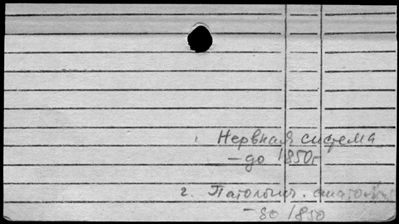 1. Нервная система
— до 1850г
2. Патологич. анатомия
— до 1850